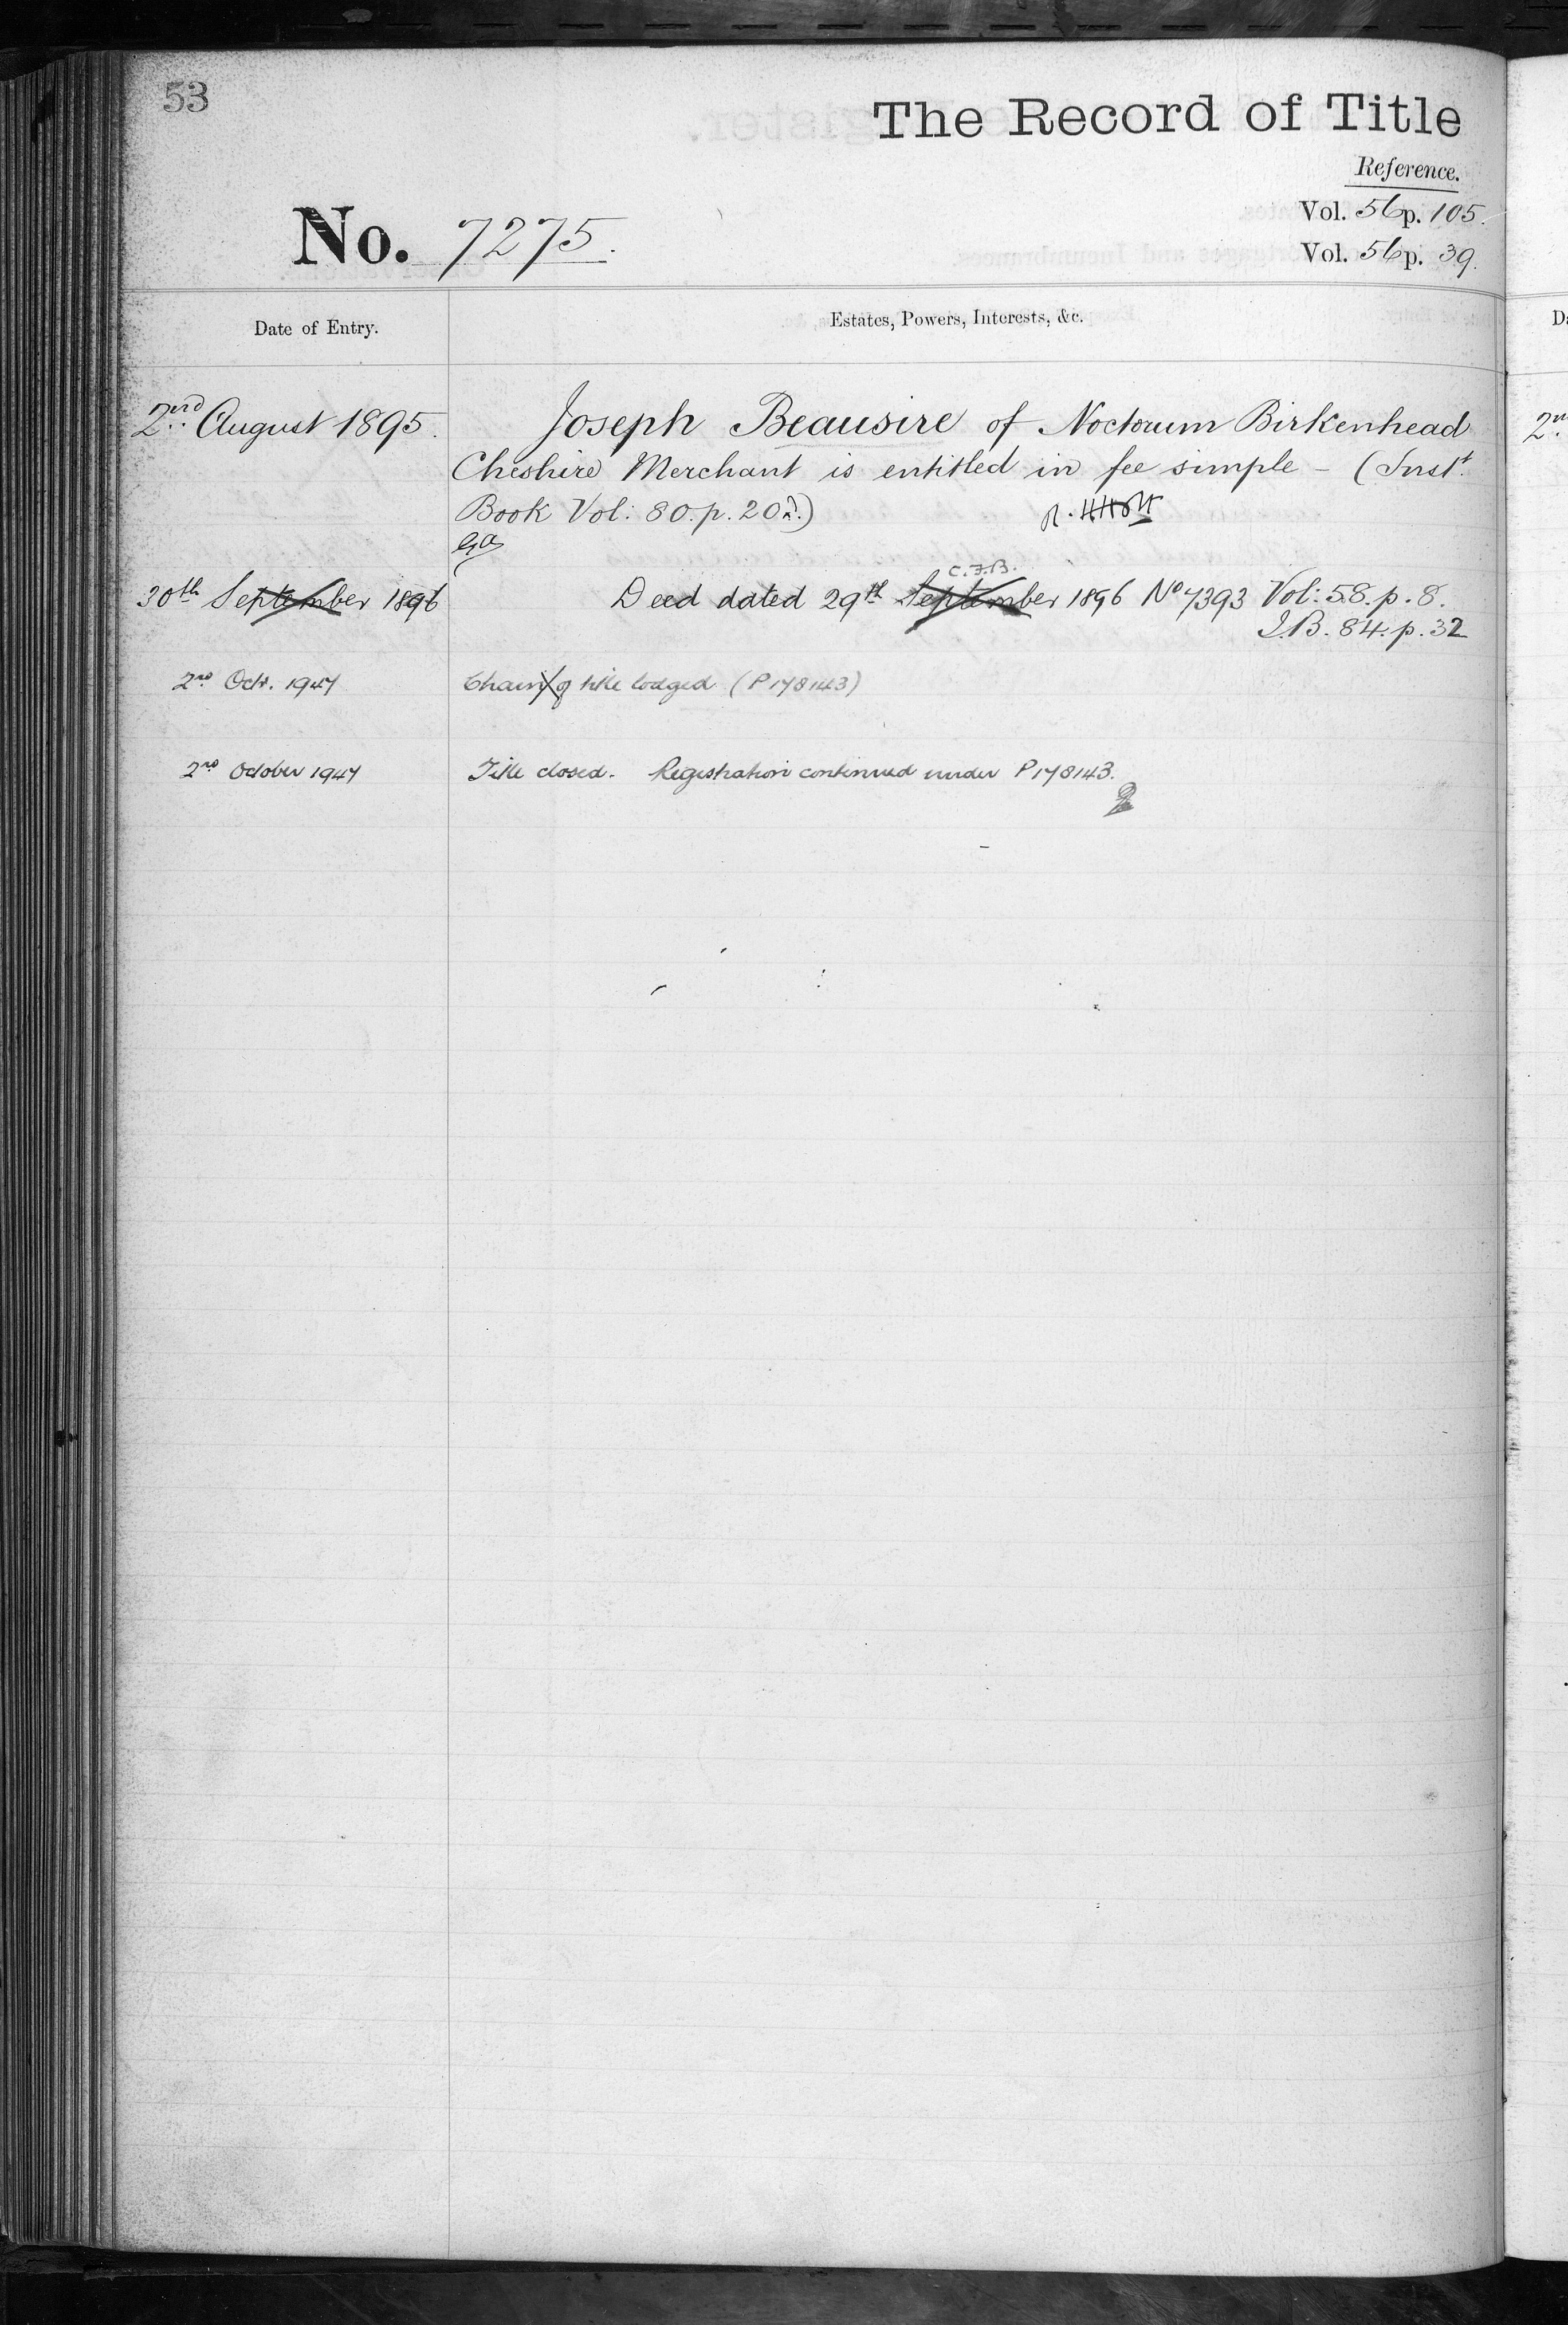 53
The Record of Title
Reference.
Vol. 56 p. 105.
No. 7275.
Vol. 56 p. 39.
Date of Entry.
Estates, Powers, Interests, &c.
2nd August 1895.
Joseph Beausire of Noctorum Birkenhead
Cheshire Merchant is entitled in fee simple – (Inst.
Book Vol: 80. p. 20
C.F.B.
30th September 1896
Deed dated 29th September 1896 No 7393 Vol: 58. p. 8.
I.B. 84. p. 32
2nd Octr. 1947
Chain of title lodged (P178143)
2nd October 1947
Title closed. Registration continued under P178143.